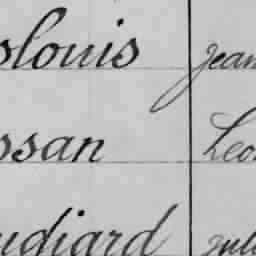 slouis Jean
ssan Leo
udiard Jule